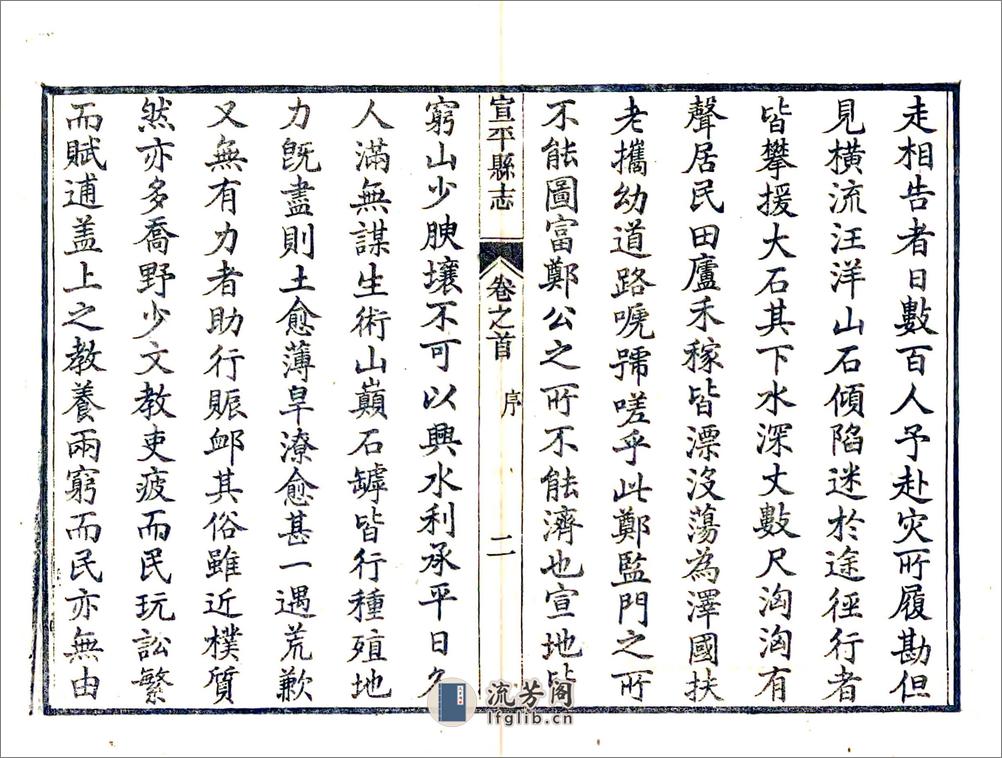 走相告者日數百人予赴灾所履勘但
見橫流汪洋山石傾陷迷於途徑行者
皆攀援大石其下水深丈數尺洶洶有
聲居民田廬禾稼皆漂沒蕩為澤國扶
老攜幼道路嗁號嗟乎此鄭監門之所
不能圖富鄭公之所不能濟也宣地皆
宣平縣志 卷之首 序 二
窮山少腴壤不可以興水利承平日久
人滿無謀生術山巔石罅皆行種殖地
力既盡則土愈薄旱潦愈甚一遇荒歉
又無有力者助行賑卹其俗雖近樸質
然亦多喬野少文教吏疲而民玩訟繁
而賦逋盖上之教養兩窮而民亦無由
流芳阁
lfglib.cn